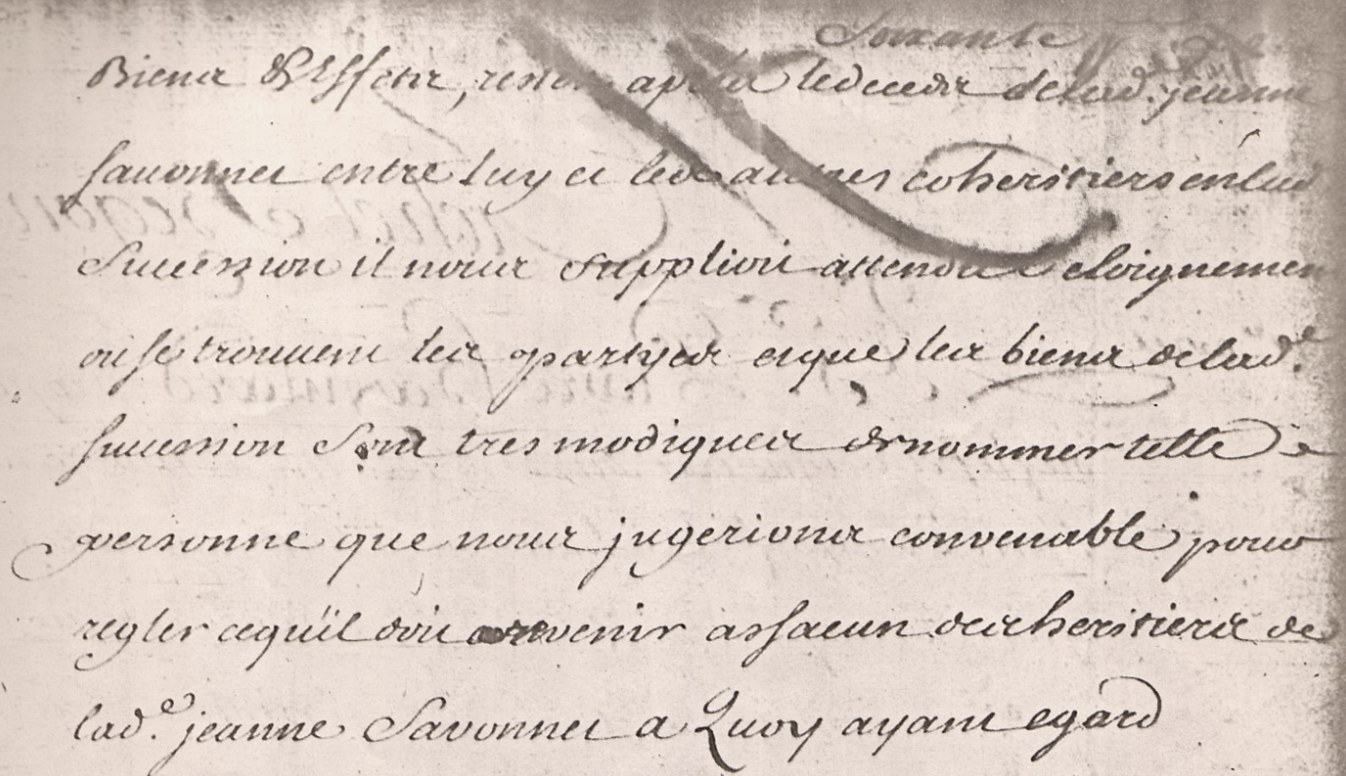 Soixante
Biens & Effets, restés après le deceds de lad. jeanne
Sauonnet entre Luy et les autres coheritiers en lad
Succession il nous supplioit attendu eloignemen
ou se trouuent les partyes et que les biens de lad.e
succession sont tres modiques de nommer telle
personne que nous jugerions convenable pour
regler cequ'il doit revenir a chacun des heritiers de
lad.e jeanne Savonnet a Quoy ayant egard